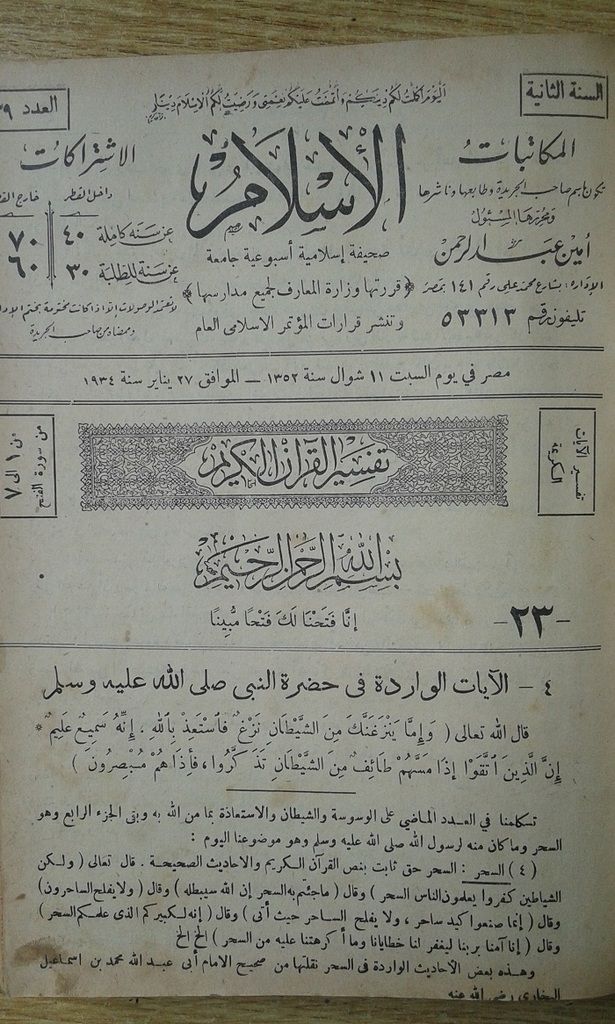 السنة الثانية
اليوم أكملت لكم دينكم وأتممت عليكم نعمتي ورضيت لكم الإسلام دينا
العدد
المكاتبات
تكون باسم صاحب الجريدة وطابعها وناشرها
ومحررها المسئول
أمين عبد الرحمن
الإدارة: بشارع محمد علي رقم ١٤١ بمصر
تليفون رقم ٥٣٣١٣
الإسلام
صحيفة إسلامية أسبوعية جامعة
﴿ قررتها وزارة المعارف لجميع مدارسها ﴾
وتنشر قرارات المؤتمر الاسلامى العام
الاشتراكات
داخل القطر خارج
عن سنة كاملة ٤٠ ٧٠
عن سنة للطلبة ٣٠ ٦٠
لا تعتمد الوصولات الا اذا كانت مختومة بختم
وممضاة من صاحب الجريدة
مصر في يوم السبت ١١ شوال سنة ١٣٥٢ — الموافق ٢٧ يناير سنة ١٩٣٤
تفسير الآيات
الكريمة
تفسير القرآن الكريم
من ١ الى ٧
من سورة الفتح
بسم الله الرحمن الرحيم
-٢٣-
إِنَّا فَتَحْنَا لَكَ فَتْحًا مُّبِينًا
٤ — الآيات الواردة فى حضرة النبى صلى الله عليه وسلم
قال الله تعالى ( وَإِمَّا يَنْزَغَنَّكَ مِنَ الشَّيْطَانِ نَزْغٌ فَاسْتَعِذْ بِاللهِ ، إِنَّهُ سَمِيعٌ عَلِيمٌ *
إِنَّ الَّذِينَ اتَّقَوْا إِذَا مَسَّهُمْ طَائِفٌ مِنَ الشَّيْطَانِ تَذَكَّرُوا ، فَإِذَا هُمْ مُبْصِرُونَ )
تكلمنا في العدد الماضي على الوسوسة والشيطان والاستعاذة بما من الله به وبقى الجزء الرابع وهو
السحر وما كان منه لرسول الله صلى الله عليه وسلم وهو موضوعنا اليوم :
( ٤ ) السحر : السحر حق ثابت بنص القرآن الكريم والاحاديث الصحيحة . قال تعالى ( ولكن
الشياطين كفروا يعلمون الناس السحر ) وقال ( ما جئتم به السحر إن الله سيبطله ) وقال ( ولا يفلح الساحرون )
وقال ( إنما صنعوا كيد ساحر ، ولا يفلح الساحر حيث أتى ) وقال ( إنه لكبيركم الذى علمكم السحر )
وقال ( إنا آمنا بربنا ليغفر لنا خطايانا وما أكرهتنا عليه من السحر ) الخ الخ
وهذه بعض الأحاديث الواردة فى السحر نقلتها من صحيح الامام أبى عبد الله محمد بن اسماعيل
البخارى رضى الله عنه